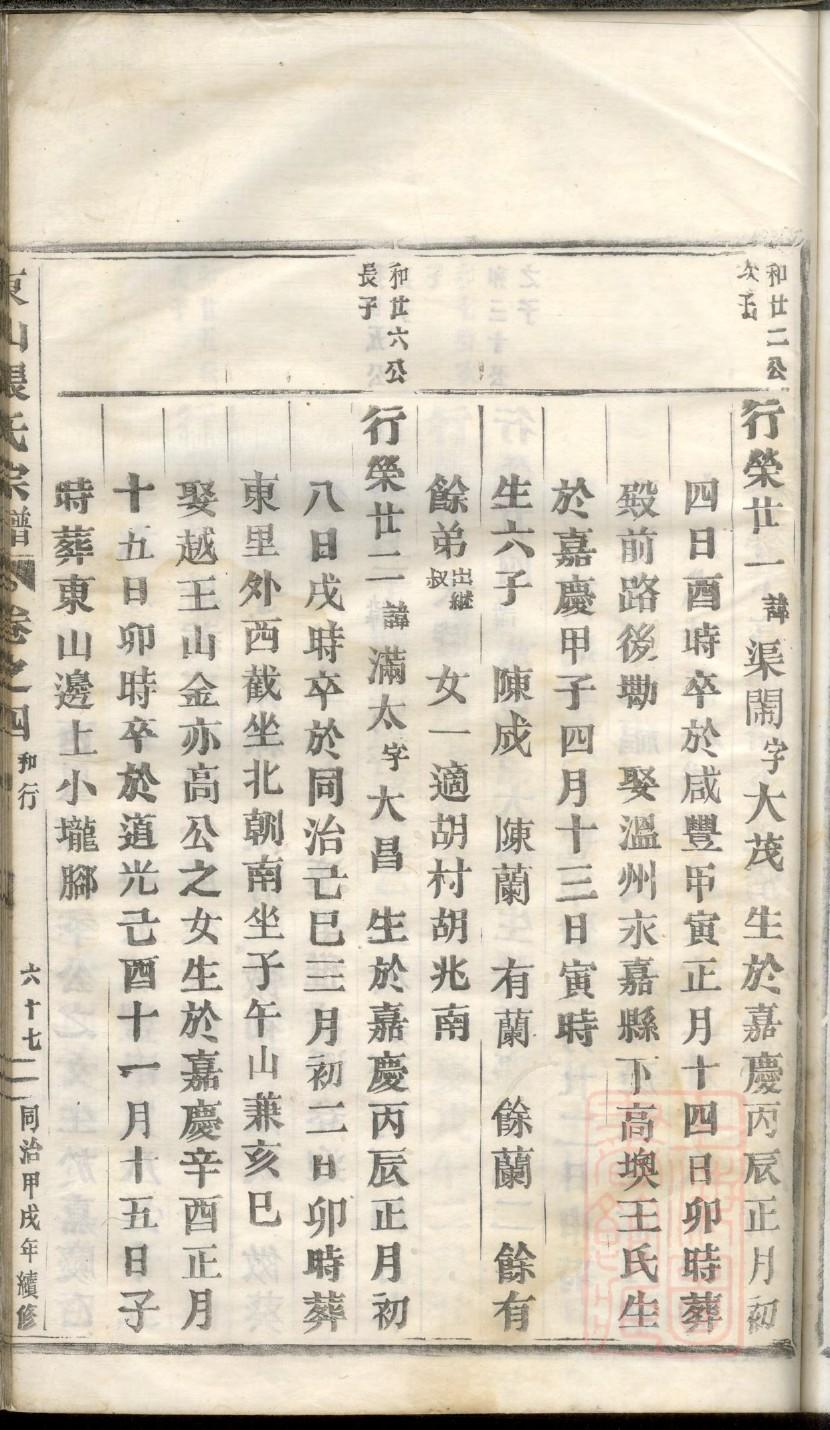 和廿二公
次子
行榮廿一諱渠鬧字大茂 生於嘉慶丙辰正月初
四日酉時卒於咸豐甲寅正月十四日卯時葬
殿前路後墈 娶溫州永嘉縣下高墺王氏生
於嘉慶甲子四月十三日寅時
生六子 陳成 陳蘭 有蘭 餘蘭二 餘有
餘弟出繼叔 女一適胡村胡兆南
和廿六公
長子
行榮廿二諱滿太字大昌 生於嘉慶丙辰正月初
八日戌時卒於同治己巳三月初二日卯時葬
東里外西截坐北朝南坐子午山兼亥巳
娶越王山金亦高公之女生於嘉慶辛酉正月
十五日卯時卒於道光己酉十一月十五日子
時葬東山邊上小壠腳
東山張氏宗譜 卷之四 和行 六十七 同治甲戌年續修